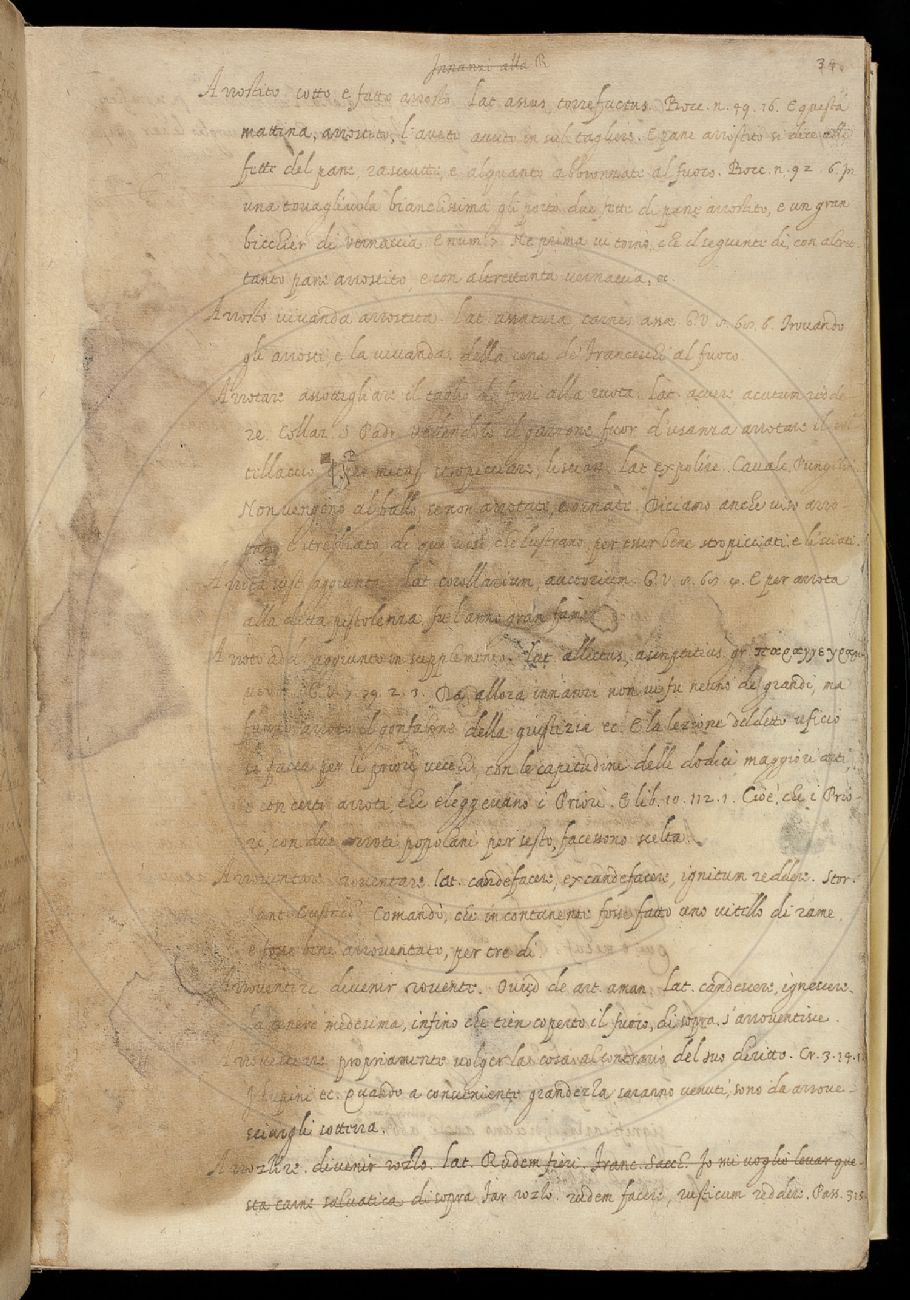 Innanzi alla R
34.
Arrostito cotto, e fatto arrosto. Lat. assus, torrefactus. Bocc. n. 49. 16. E questa
mattina, arrostito, l'avete avuto in sul tagliere. E pane arrostito si dice alle
fette del pane, e alquanto abbronzate al fuoco. Bocc. n. 92. 6. In
una tovagliuola bianchissima gli portò due fette di pane arrostito, e un gran
bicchier di vernaccia. E num. 7. Ne prima vi tornò, che il seguente di, con altre-
tanto pane arrostito, e con altrettanta vernaccia, ec.
Arrosto vivanda arrostita. Lat. assatura, carnes assæ. G. V. 6. Trovando
gli arrosti e la vivanda della cena de' Franceschi al fuoco
Arrotare assottigliare il taglio de' ferri alla ruota. Lat. acuere, acutum redde-
re. Collaz. S. Padr. Vedendolo il garzone fuor d'usanza arrotare il col-
tellaccio. Per metaf. stropicciare, lisciare. Lat. expolire. Cavalc. Pungil.
Non vengono al ballo, se non arrotate, e ornate. Diciamo anche viso arro-
tato, e strebbiato di que' visi che lustrano, per esser bene stropicciati e lisciati.
Arrota sust. aggiunta. Lat. corollarium, auctarium. G. V. E per arrota
alla detta pistolenza fu l'anno gran fame
Arroto add. aggiunto in supplemento. Lat. allectus, gr.
G. V. 7. 79. 2. 1. Da allora innanzi non vi fu neuno de' grandi, ma
fuvvi arroto il gonfalone della giustizia ec. E la lezione del detto uficio
si facea per li priori vecchi, con le capitudini delle dodici maggiori arti,
e con certi arroti, che eleggevano i Priori. E lib. 10. 112. 1. Cioè, che i Prio-
ri, con due arroti popolani per sesto, facessono scelta.
Arroventare roventare. Lat. candefacere, excandefacere, ignitum reddere. Stor.
Sant. Eustach. Comandò, che incontanente fosse fatto uno vitello di rame,
e fosse bene arroventato, per tre dì
Arroventire divenir rovente. Ovid. de art. aman. Lat. candescere, ignescere.
La cenere medesima, infino che tien coperto il fuoco, di sopra s'arroventisce.
Arrovesciare propriamente volger la cosa al contrario del suo diritto. Cr. 3. 14. 1.
I lupini ec. Quando a conveniente grandezza saranno venuti, sono da arrove-
sciargli sotterra.
Arrozzire. divenir rozzo. Lat. Rudem fieri. Franc. Sacch. Io mi voglio levar que-
sta carne salvatica di sopra Far rozzo. rudem facere, rusticum reddere. Pass. 315